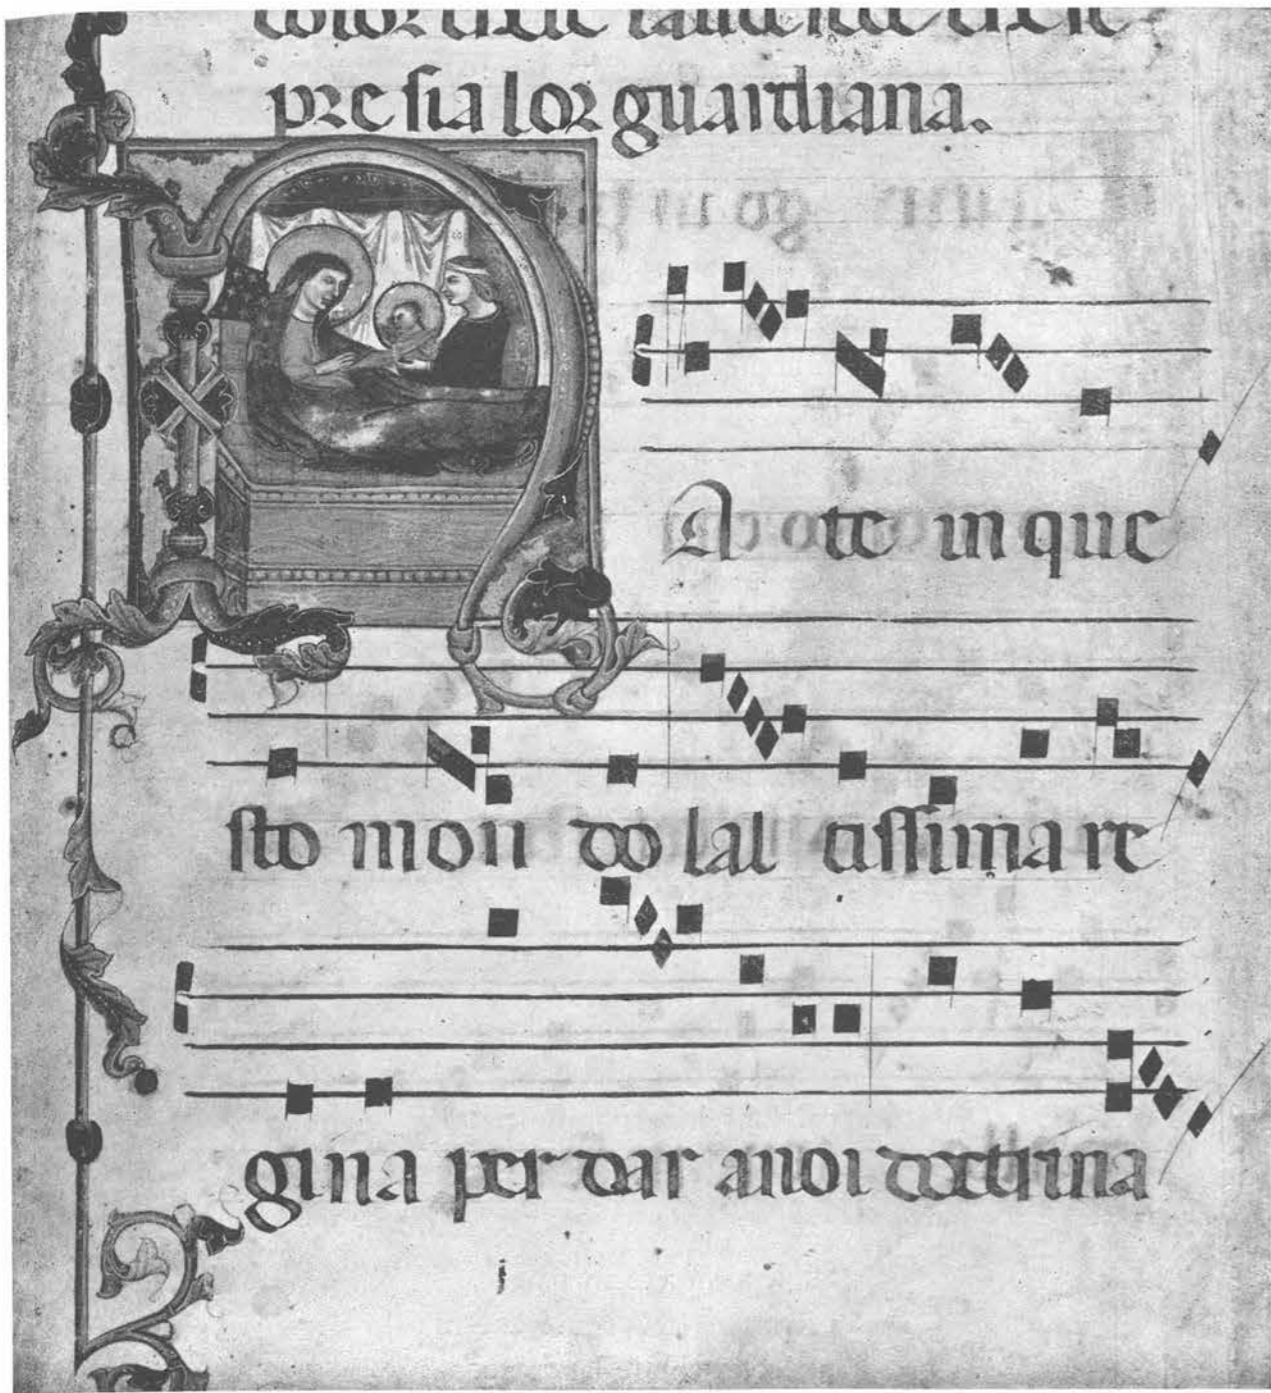 pre sia lor guardiana.
NA te in que
sto mon do lal tissima re
gina per dar anoi doctrina